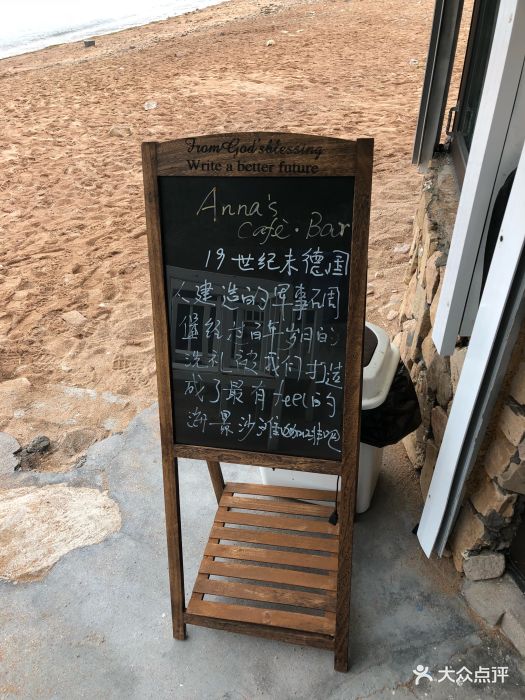 From God'sblessing
Write a better future
Anna's
Cafè·Bar
19世纪末德国
人建造的军事碉
堡经过百年岁月的
洗礼被我们打造
成了最有feel的
海景沙滩咖啡吧
大众点评